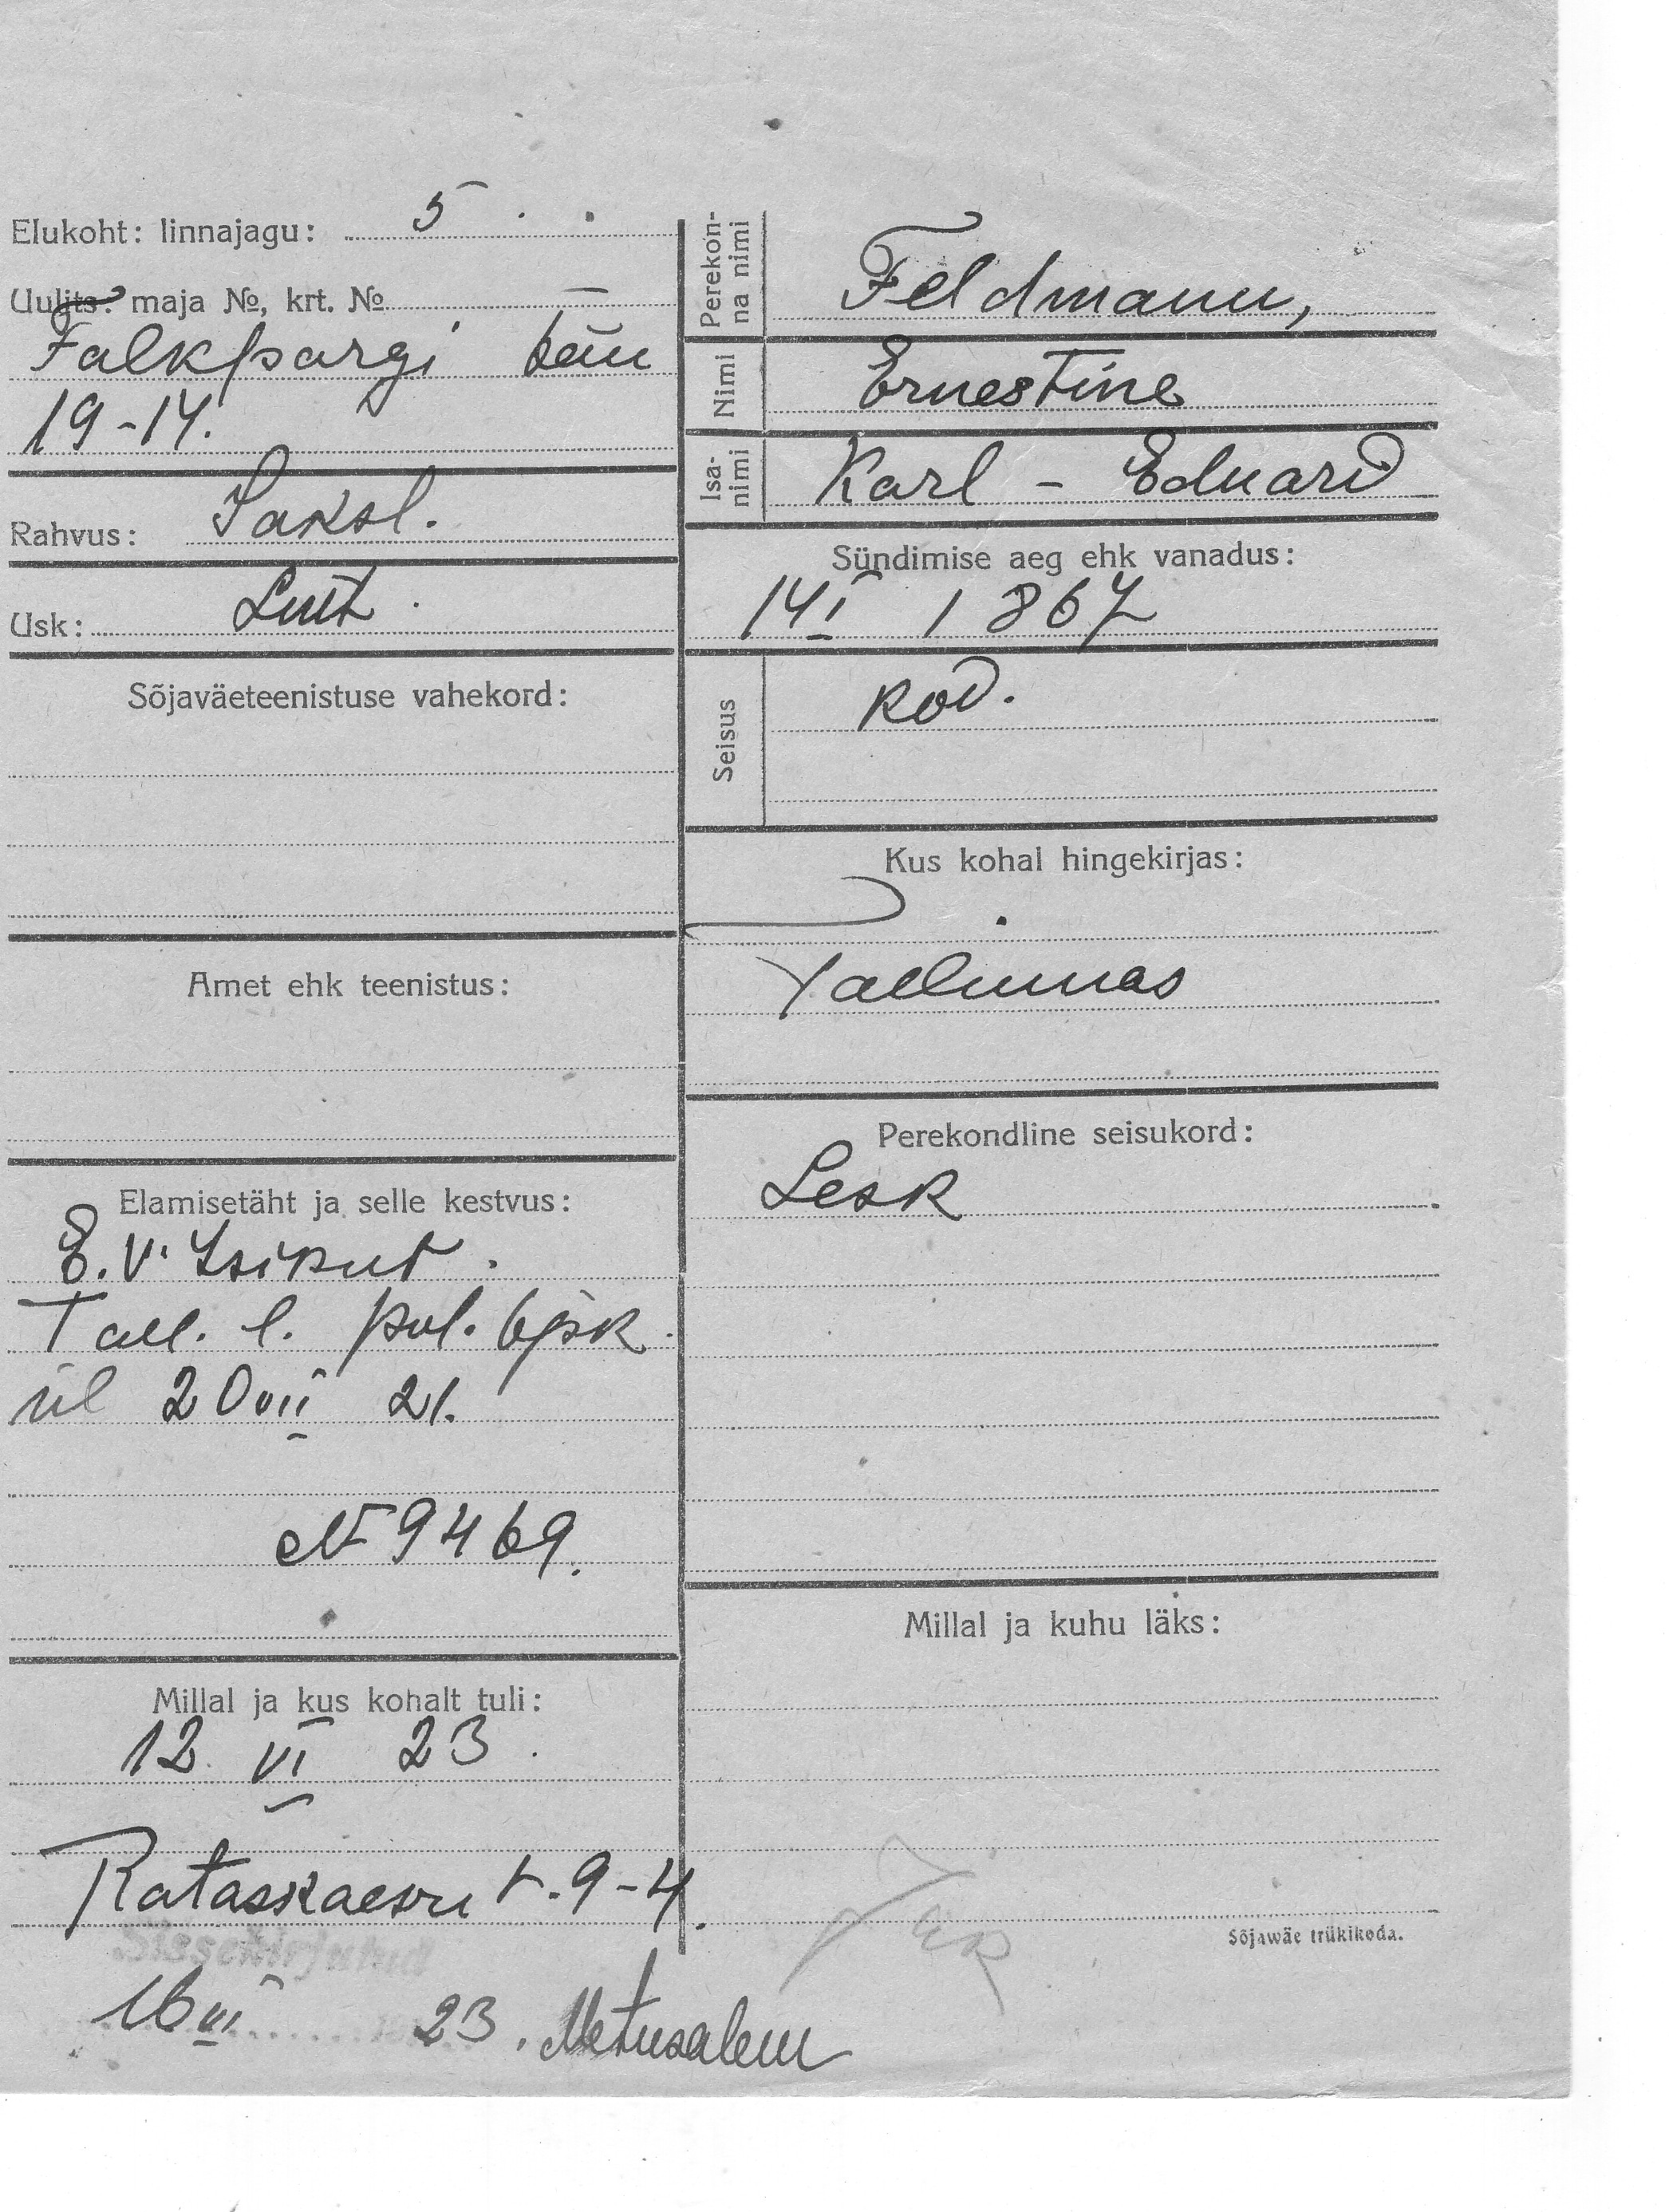 Elukoht: linnajagu: 5
Uulits: maja №, krt. №
Falkpargi tän
19-14.
Rahvus: Saksl.
Usk: Lut.
Sõjaväeteenistuse vahekord:
Amet ehk teenistus:
Elamisetäht ja selle kestvus:
E.V. Isikut.
Tall. l. pol. 6 jsk.
ül 20 VII 21.
№ 9469.
Millal ja kus kohalt tuli:
12 VI 23.
Rataskaevu t. 9-4.
Sissekirjutud
16 VI 23. Metusalem
Perekon-
na nimi
Feldmann,
Nimi Ernestine
Isa-
nimi
Karl - Eduard
Sündimise aeg ehk vanadus:
14 I 1867
Seisus kod.
Kus kohal hingekirjas:
Tallinnas
Perekondline seisukord:
Lesk
Millal ja kuhu läks:
Sõjawäe trükikoda.